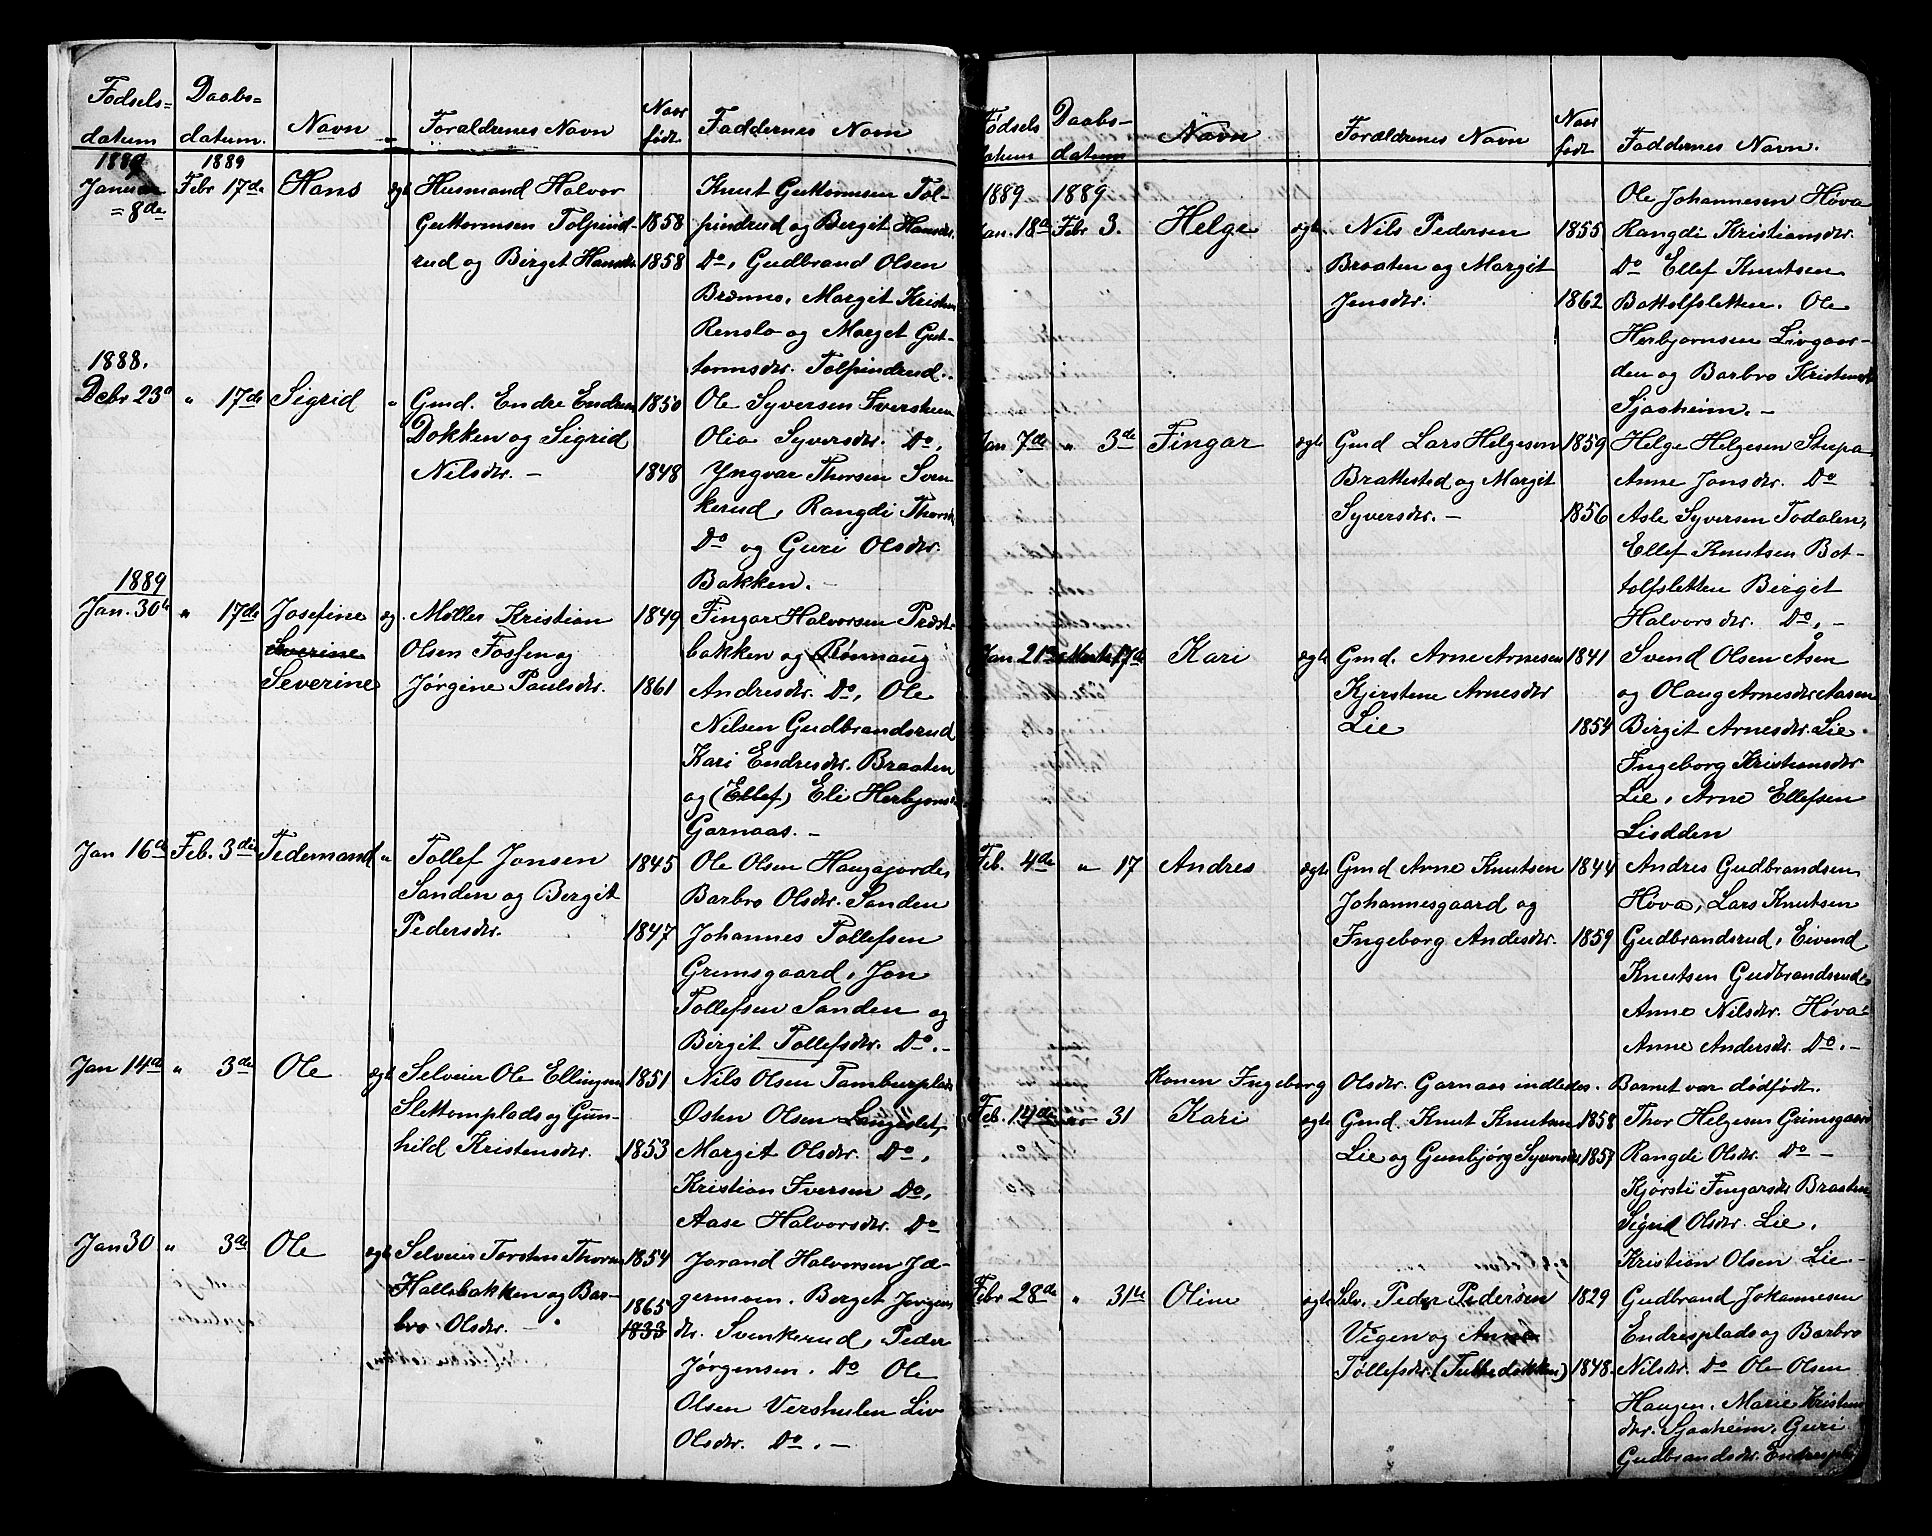 Fødsels-
datum
Daabs-
datum.
Navn
Forældrenes Navn
Naar
født
Faddernes Navn
1889 1889
Januar Febr 17de Hans ægt Husmand Halvor Knut Guttormsen Tol-
=8de Guttormsen Tolpind- 1858 pindrud og Bergit Hansdr.
rud og Birget Hansdr. 1858 Do, Gudbrand Olsen
Brænno, Margit Kristens
Renslo og Marget Gut-
1888. tormsdr. Tolpindrud.
Debr 23 " 17de Sigrid " Gmd. Endre Endresen 1850 Ole Syversen Iversheim
Dokken og Sigrid Olia Syversdr. Do,
Nilsdr. - 1848 Yngvar Thorsen Sven-
kerud, Rangdi Thorsdr
Do og Guri Olsdr.
1889 Bakken. -
Jan. 30te " 17de Josefine æg. Møller Kristian 1849 Fingar Halvorsen Præst-
Severine Olsen Fossen og bakken og Rønnaug
Severine Jørgine Paulsdr. 1861 Andresdr. Do, Ole
Nilsen Gudbrandsrud
Kari Endresdr. Braaten
og (Ellef) Eli Herbjørnsd
Garnaas. -
Jan 16de Feb. 3die Tedemand " Tollef Jonsen 1845 Ole Olsen Haugagarde,
Sanden og Bergit Barbro Olsdr. Sanden
Pedersdr. 1847 Johannes Tollefsen
Grimsgaard, Jon
Tollefsen Sanden og
Birgit Tollefsdr. Do. -
Jan 14de " 3de Ole ægt Selveier Ole Ellingsen 1851 Nils Olsen Tamburplads
Slettomplads og Gun- Østen Olsen Langeslet,
hild Kristensdr. 1853 Margit Olsdr. Do,
Kristian Iversen Do,
Aase Halvorsdr. Do
Jan 30 " 3de Ole ægt Selveier Torsten Thorsen 1854 Jorand Halvorsen Jæ-
Hallobakken og Bar- 1865 germoen. Berget Jørgens
bro Olsdr. - 1833 dr. Svenkerud, Peder
Jørgensen. Do Ole
Olsen Vershulen Liv
Olsdr. Do. -
Fødsels
datum
Daabs-
datum
Navn
Forældrenes Navn
Naar
født
Faddernes Navn.
1889 1889 Ole Johannesen Høva
Jan. 18de Febr 3. Helge ægte. Nils Pedersen 1855 Rangdi Kristiansdr.
Braaten og Margit Do Ellef Knutsen
Jensdr. 1862 Bottolfsletten. Ole
Herbjørnsen Livgaar-
den og Barbro Kristensdr
Sjaaheim. -
Jan 7de " 3de Fingar ægte Gmd Lars Helgesen 1859 Helge Helgesen Stupa
Brattested og Margit Anne Jonsdr. Do
Syversdr. - 1856 Asle Syversen Todalen,
Ellef Knutsen Bot-
tolfsletten Birgit
Halvorsdr. Do, -
Jan 21 Marts 17de Kari ægte Gmd. Arne Arnesen 1841 Svend Olsen Åsen
Kjerstine Arnesdr og Olaug Arnesdr Aasen
Lie 1854 Birgit Arnesdr. Lie.
Ingeborg Kristensdr
Lie, Arne Ellefsen
Lisdden
Feb. 4de " 17 Andres ægte Gmd Arne Knutsen 1844 Andres Gudbrandsen
Johannesgaard og Høva, Lars Knutsen
Ingeborg Andesdr. 1859 Gudbrandsrud, Eivind
Knutsen Gudbrandsrud,
Anne Nilsdr. Høva
Anne Andersdr Do. -
Konen Ingeborg Olsdr. Garnaas indledes. Barnet var dødfødt.
Feb. 14de 31 Kari ægte Gmd. Knut Knutsen 1858 Thor Helgesen Grimsgaard
Lie og Gunbjørg Syversdr 1857 Rangdi Olsdr. Do -
Kjørsti Fingarsdr Braaten
Sigrid Olsdr. Lie.
Kristian Olsen Lie -
Febr 28de " 31te Oline ægte Selv. Peder Pedersen 1829 Gudbrand Johannesen
Vigen og Anne Endresplads og Barbro
Tollefsdr. (Tubbedokken) 1848. Nilsdr. Do Ole Olsen
Haugen. Marie Kristens
dr. Sjaaheim. Guri
Gudbrandsdr. Endrespl.